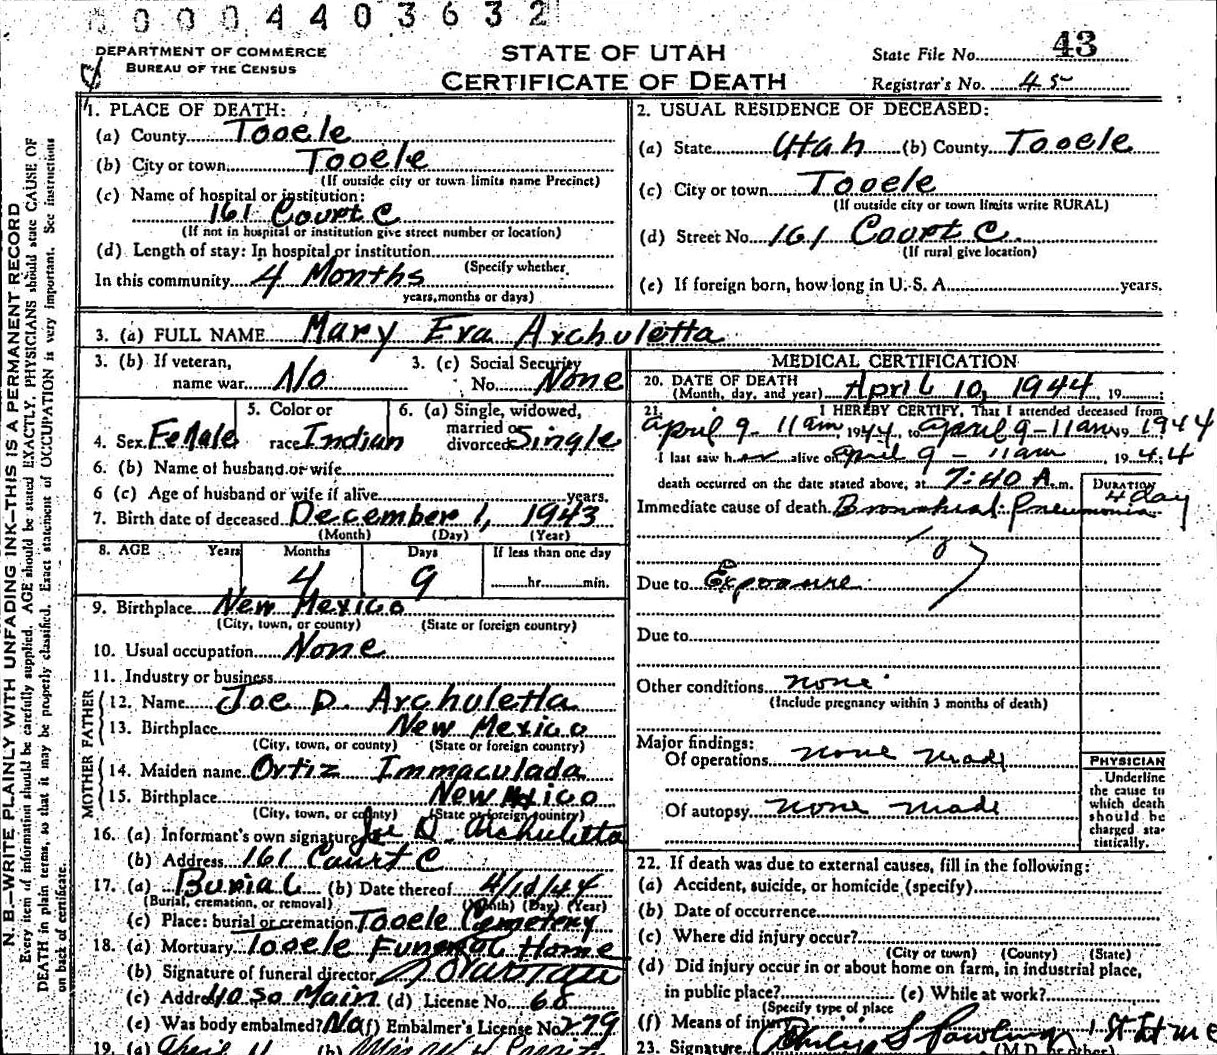 0000440 3632
DEPARTMENT OF COMMERCE
BUREAU OF THE CENSUS
STATE OF UTAH
CERTIFICATE OF DEATH
State File No. 43
Registrar's No. 45
1. PLACE OF DEATH:
(a) County Tooele
(b) City or town Tooele
(If outside city or town limits name Precinct)
(c) Name of hospital or institution:
161 Court C
(If not in hospital or institution give street number or location)
(d) Length of stay: In hospital or institution
(Specify whether
In this community 4 Months
years, months or days)
2. USUAL RESIDENCE OF DECEASED:
(a) State Utah (b) County Tooele
(c) City or town Tooele
(If outside city or town limits write RURAL)
(d) Street No. 161 Court C.
(If rural give location)
(e) If foreign born, how long in U. S. A. years.
3. (a) FULL NAME Mary Eva Archuletta
3. (b) If veteran,
name war No
3. (c) Social Security
No. None
4. Sex Female
5. Color or
race Indian
6. (a) Single, widowed,
married or
divorced Single
6. (b) Name of husband or wife
6 (c) Age of husband or wife if alive years.
7. Birth date of deceased December 1, 1943
(Month) (Day) (Year)
8. AGE Years Months Days If less than one day
4 9 hr. min.
9. Birthplace New Mexico
(City, town, or county) (State or foreign country)
10. Usual occupation None
11. Industry or business
FATHER
12. Name Joe D. Archuletta
13. Birthplace New Mexico
(City, town, or county) (State or foreign country)
MOTHER
14. Maiden name Ortiz Immaculada
15. Birthplace New Mexico
(City, town, or county) (State or foreign country)
16. (a) Informant's own signature Joe D. Archuletta
(b) Address 161 Court C
17. (a) Burial (b) Date thereof 4/12/44
(Burial, cremation, or removal) (Month) (Day) (Year)
(c) Place: burial or cremation Tooele Cemetery
18. (a) Mortuary Tooele Funeral Home
(b) Signature of funeral director
(c) Address 40 So Main (d) License No. 68
(e) Was body embalmed? No (f) Embalmer's License No. 279
19. (a) April 11 (b)
MEDICAL CERTIFICATION
20. DATE OF DEATH
(Month, day, and year) April 10, 1944, 19
21. I HEREBY CERTIFY, That I attended deceased from
April 9 - 11am, 1944, to April 9 - 11am 19 1944
I last saw her alive on April 9 - 11am, 1944
death occurred on the date stated above, at 7:40 A.m.
DURATION
Immediate cause of death Bronchial Pneumonia 4 day
107
Due to Exposure
Due to
Other conditions none
(Include pregnancy within 3 months of death)
Major findings:
Of operations none made
Of autopsy none made
PHYSICIAN
Underline
the cause to
which death
should be
charged sta-
tistically.
22. If death was due to external causes, fill in the following:
(a) Accident, suicide, or homicide (specify)
(b) Date of occurrence
(c) Where did injury occur?
(City or town) (County) (State)
(d) Did injury occur in or about home on farm, in industrial place,
in public place? (e) While at work?
(Specify type of place
(f) Means of injury
23. Signature Philip S (M.D. or other)
N. B.—WRITE PLAINLY WITH UNFADING INK—THIS IS A PERMANENT RECORD
Every item of information should be carefully supplied. AGE should be stated EXACTLY. PHYSICIANS should state CAUSE OF
DEATH in plain terms, so that it may be properly classified. Exact statement of OCCUPATION is very important. See instructions
on back of certificate.